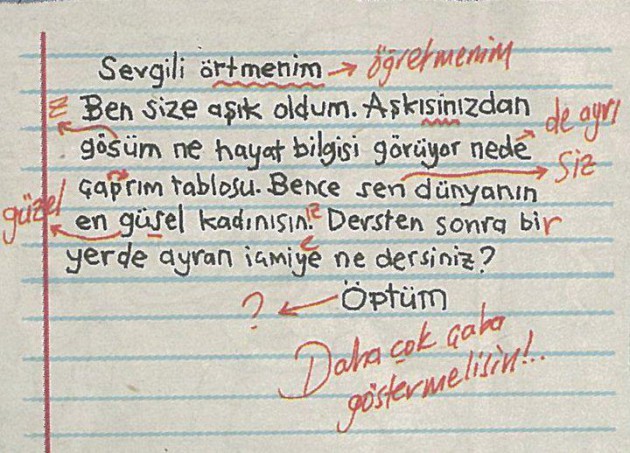 Sevgili örtmenim → öğretmenim
z Ben size aşık oldum. Aşkısinızdan
de ayrı
gösüm ne hayat bilgisi görüyor nede
siz
çaprım tablosu. Bence sen dünyanın
güzel
en güsel kadınısın. iz Dersten sonra bir
yerde ayran içmiye e ne dersiniz?
? ← Öptüm
Daha çok çaba
göstermelisin!..